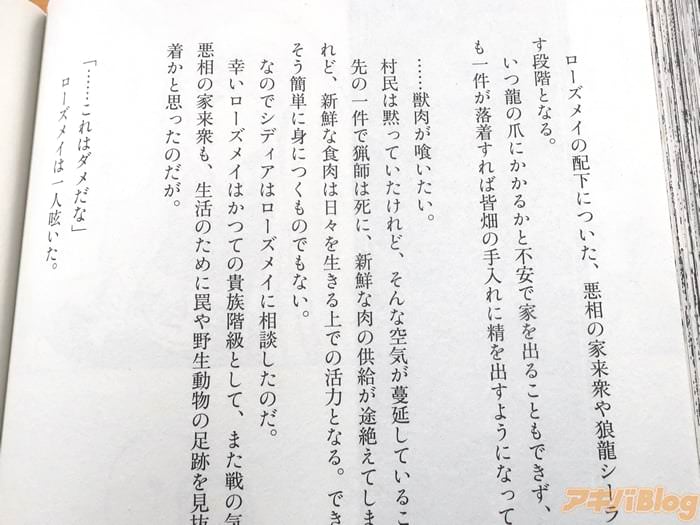 ローズメイの配下についた、悪相の家来衆や狼龍シーラ
す段階となる。
いつ龍の爪にかかるかと不安で家を出ることもできず、
も一件が落着すれば皆畑の手入れに精を出すようになって
……獣肉が喰いたい。
村民は黙っていたけれど、そんな空気が蔓延しているこ
先の一件で猟師は死に、新鮮な肉の供給が途絶えてしま
れど、新鮮な食肉は日々を生きる上での活力となる。でき
そう簡単に身につくものでもない。
なのでシディアはローズメイに相談したのだ。
幸いローズメイはかつての貴族階級として、また戦の気
悪相の家来衆も、生活のために罠や野生動物の足跡を見抜
着かと思ったのだが。
「……これはダメだな」
ローズメイは一人呟いた。
アキバBlog